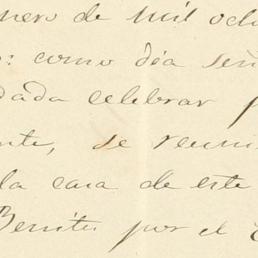 nero de mil och
o: como dia señ
dada celebrar p
nte, se reuni
la casa de este
Benites por el E